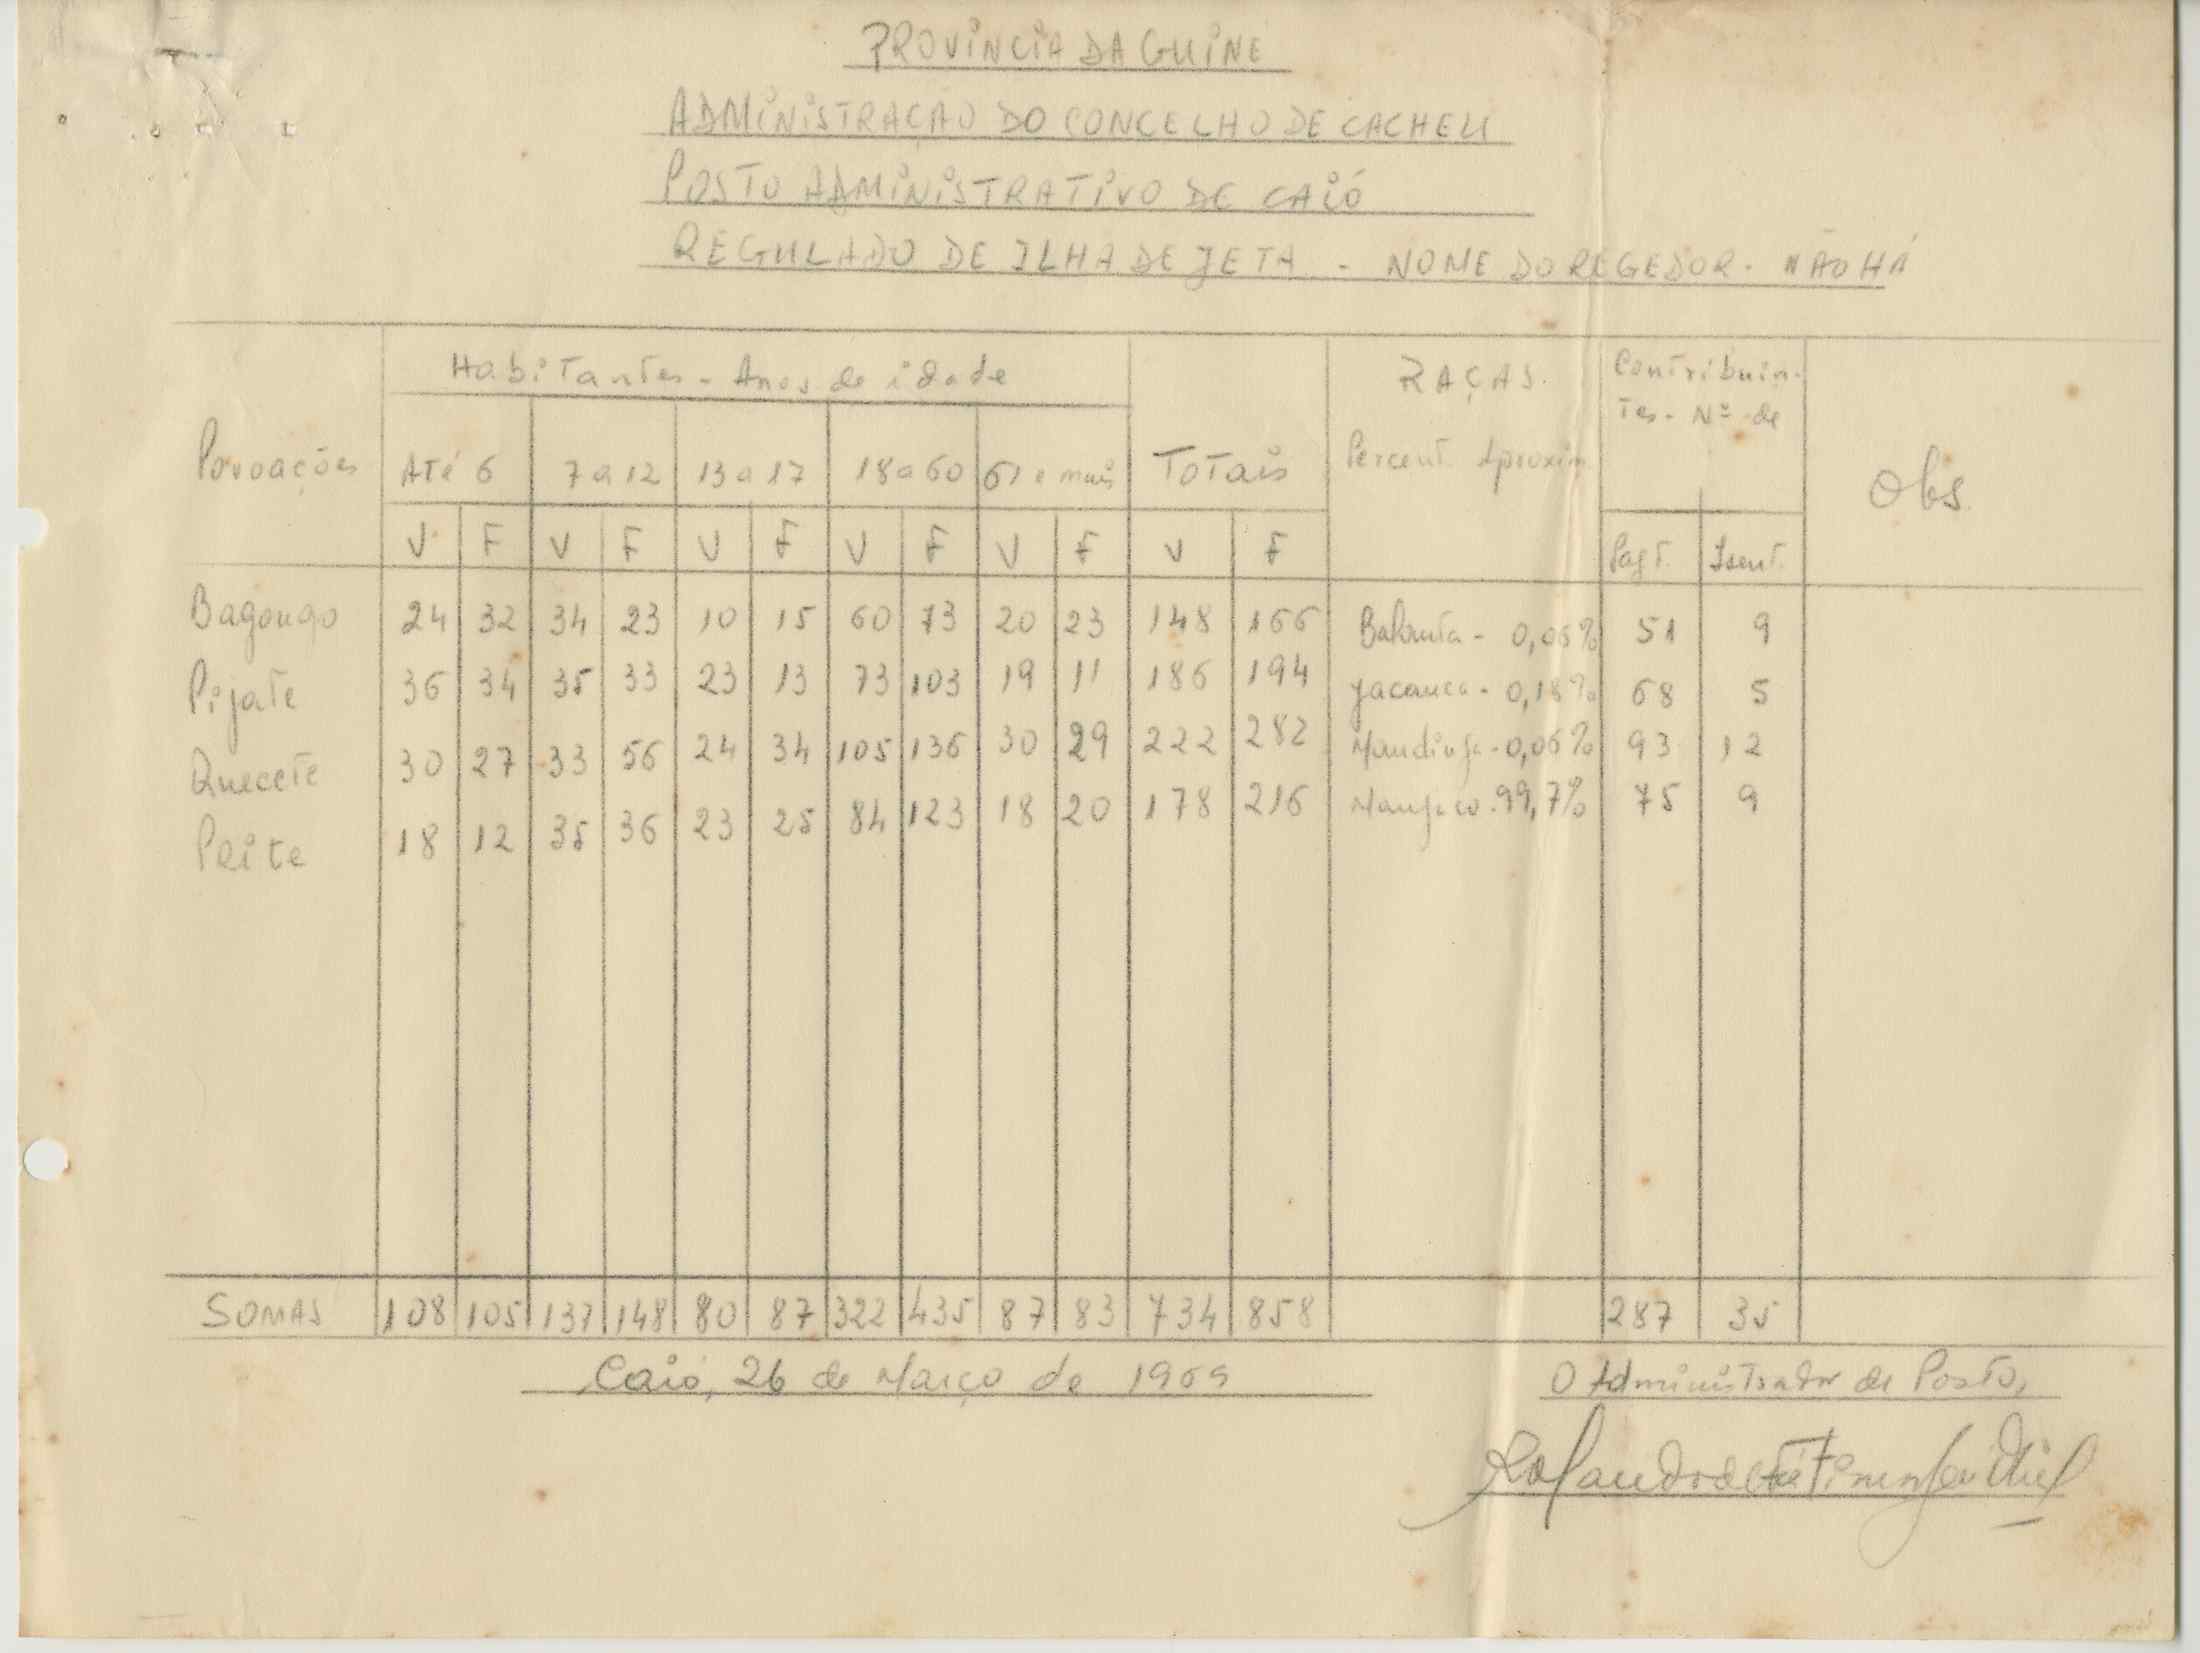 PROVINCIA DA GUINE
ADMINISTRAÇÃO DO CONCELHO DE CACHEU
POSTO ADMINISTRATIVO DE CAIÓ
REGULADO DE ILHA DE JETA - NOME DO REGEDOR - NÃO HÁ
Habitantes - Anos de idade
RAÇAS
Contribuin-
tes - Nº de
Povoações Até 6 7 a 12 13 a 17 18 a 60 61 e mais Totais Percent. Aproxim. Obs
V F V F V F V F V F V F Pagt. Isent.
Bagongo 24 32 34 23 10 15 60 73 20 23 148 166 Balanta - 0,06% 51 9
Pijate 36 34 35 33 23 13 73 103 19 11 186 194 Jacanca - 0,18% 68 5
Quecete 30 27 33 56 24 34 105 136 30 29 222 282 Mandinga - 0,06% 93 12
Peite 18 12 35 36 23 25 84 123 18 20 178 216 Manjaco - 99,7% 75 9
SOMAS 108 105 137 148 80 87 322 435 87 83 734 858 287 35
Caió, 26 de Março de 1969
O Administrador de Posto,